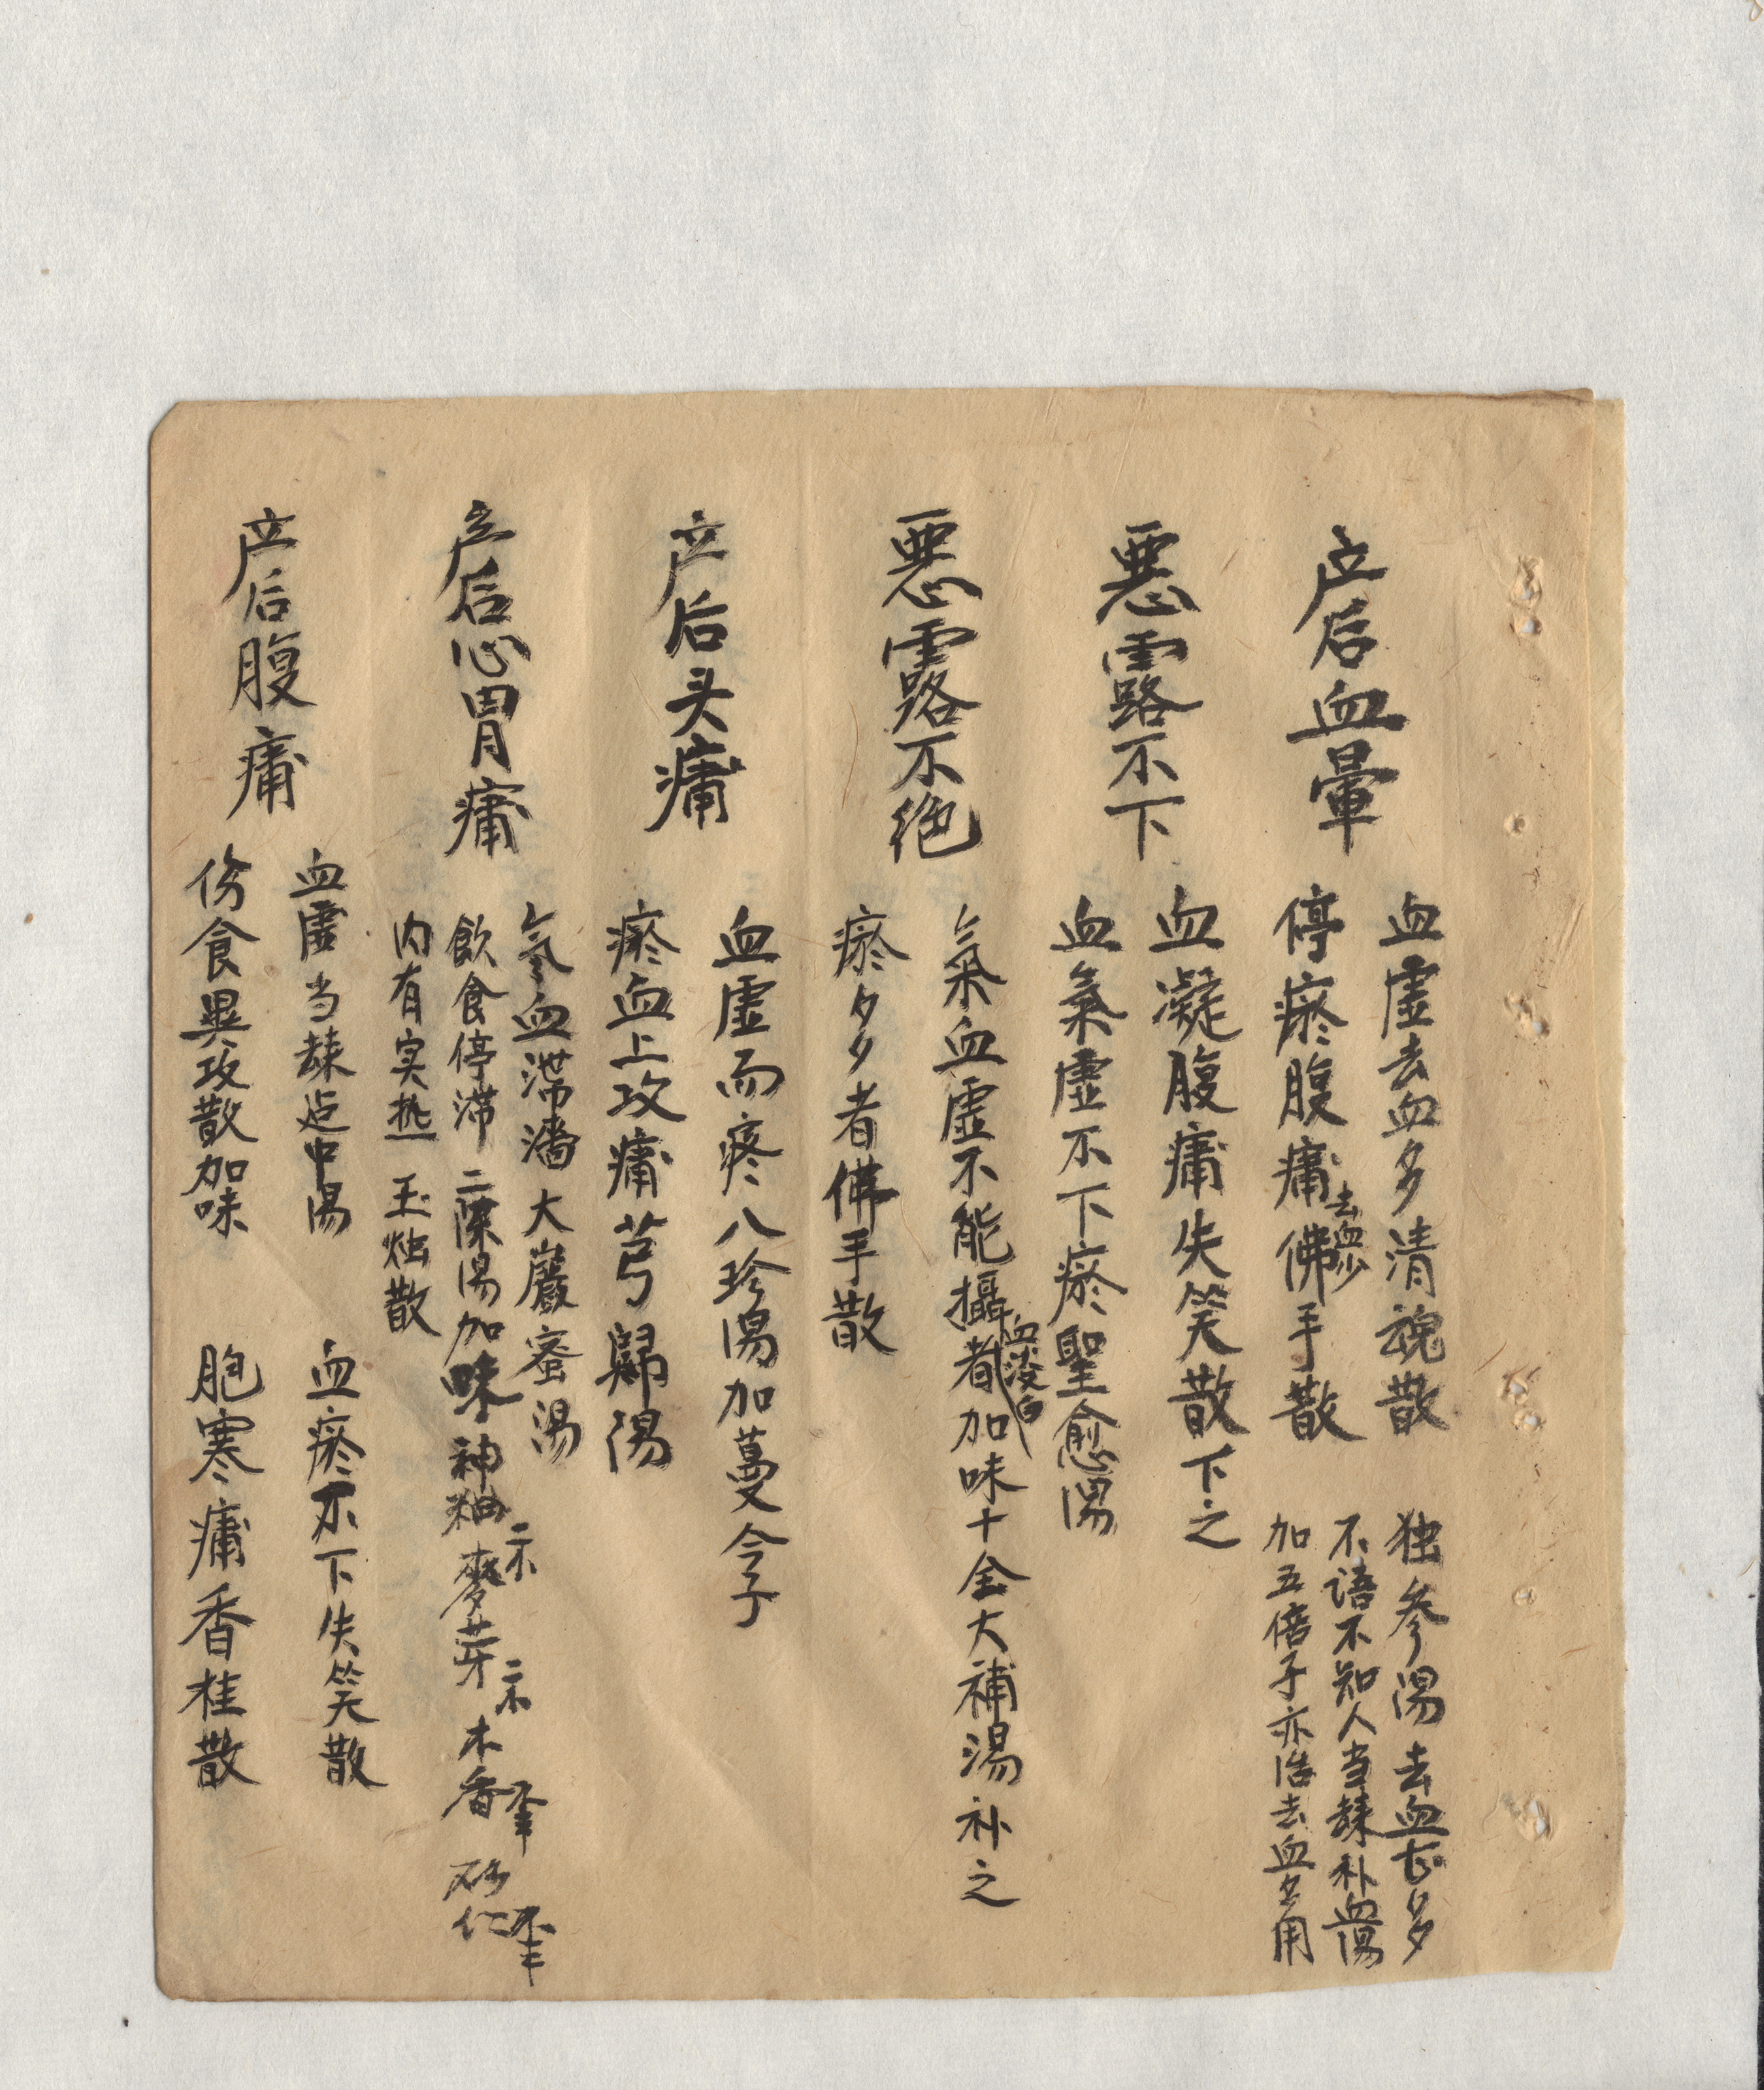 产后血暈
血虛去血多清魂散
停瘀腹痛佛手散
去血少
独參湯去血甚多
不语不知人当歸补血湯
加五倍子亦治去血多用
悪露不下
血凝腹痛失笑散下之
血氣虛不下瘀聖愈湯
悪露不绝
氣血虛不能攝者加味十全大補湯补之
血淡白
瘀多者佛手散
产后头痛
血虛而疼八珍湯加蔓今子
瘀血上攻痛芎歸湯
产后心胃痛
氣血滞濇大巖蜜湯
飲食停滞二陳湯加味神粬二不麥芽二不木香不半砂仁不半
内有実热玉烛散
产后腹痛
血虛当歸建中湯
血瘀不下失笑散
伤食異攻散加味
胞寒痛香桂散